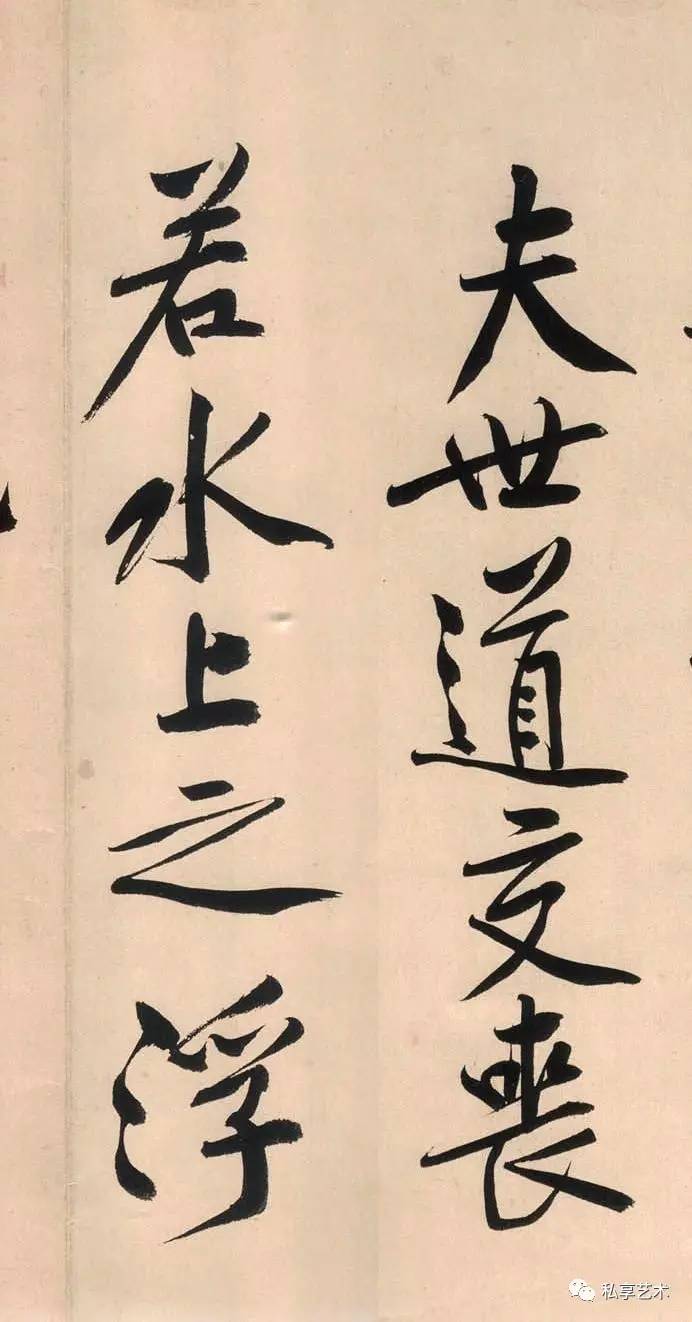 夫世道交喪
若水上之浮
私享艺术